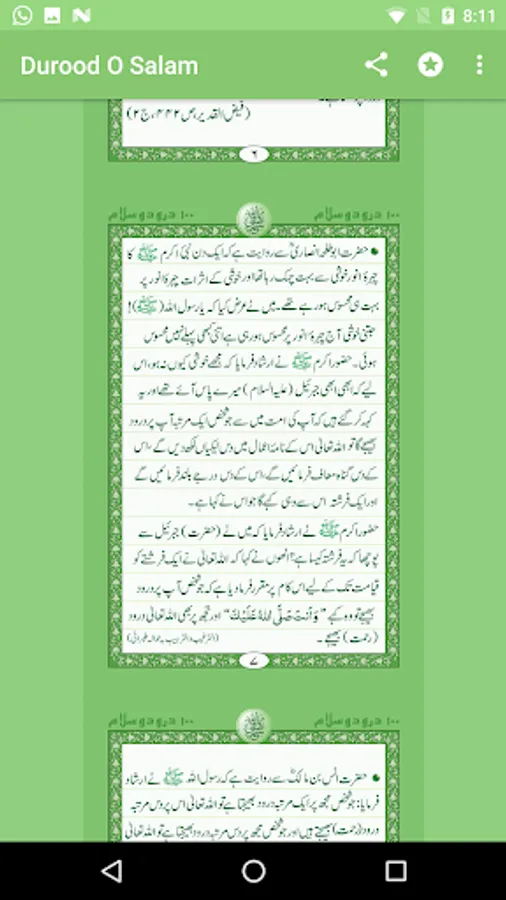 8:11
Durood O Salam
(فیض القدیر،ص ۴۴۲،ج۲)
۶
۱۰۰ درود و سلام
۱۰۰ درود و سلام
حضرت ابوطلحہ انصاریؓ سے روایت ہے کہ ایک دن نبی اکرم ﷺ کا
چہرۂ انور خوشی سے بہت چمک رہا تھا اور خوشی کے اثرات چہرۂ انور پر
بہت ہی محسوس ہو رہے تھے۔ میں نے عرض کیا کہ یا رسول اللہ (ﷺ)!
جتنی خوشی آج چہرۂ انور پر محسوس ہو رہی ہے اتنی کبھی پہلے نہیں محسوس
ہوئی۔ حضور اکرم ﷺ نے ارشاد فرمایا کہ مجھے خوشی کیوں نہ ہو، اس
لیے کہ ابھی ابھی جبرئیل (علیہ السلام) میرے پاس آئے تھے اور یہ
کہہ کر گئے ہیں کہ آپ کی امت میں سے جو شخص ایک مرتبہ آپ پر درود
بھیجے گا تو اللہ تعالیٰ اس کے نامۂ اعمال میں دس نیکیاں لکھ دیں گے، اس
کے دس گناہ معاف فرمائیں گے، اس کے دس درجے بلند فرمائیں گے
اور ایک فرشتہ اس سے وہی کہے گا جو اس نے کہا ہے۔
حضور اکرم ﷺ نے ارشاد فرمایا کہ میں نے (حضرت) جبرئیل سے
پوچھا کہ یہ فرشتہ کیسا ہے؟ انھوں نے کہا کہ اللہ تعالیٰ نے ایک فرشتے کو
قیامت تک کے لیے اس کام پر مقرر فرما دیا ہے کہ جو شخص آپ پر درود
بھیجے تو وہ کہے ”وَأَنْتَ صَلَّى اللهُ عَلَيْكَ“ اور تجھ پر بھی اللہ تعالیٰ درود
(رحمت) بھیجے۔ (الترغیب والترہیب بحوالہ طبرانی)
۷
۱۰۰ درود و سلام
۱۰۰ درود و سلام
حضرت انس بن مالکؓ سے روایت ہے کہ رسول اللہ ﷺ نے ارشاد
فرمایا: جو شخص مجھ پر ایک مرتبہ درود بھیجتا ہے تو اللہ تعالیٰ اس پر دس مرتبہ
درود (رحمت) بھیجتے ہیں اور جو شخص مجھ پر دس مرتبہ درود بھیجتا ہے تو اللہ تعالیٰ